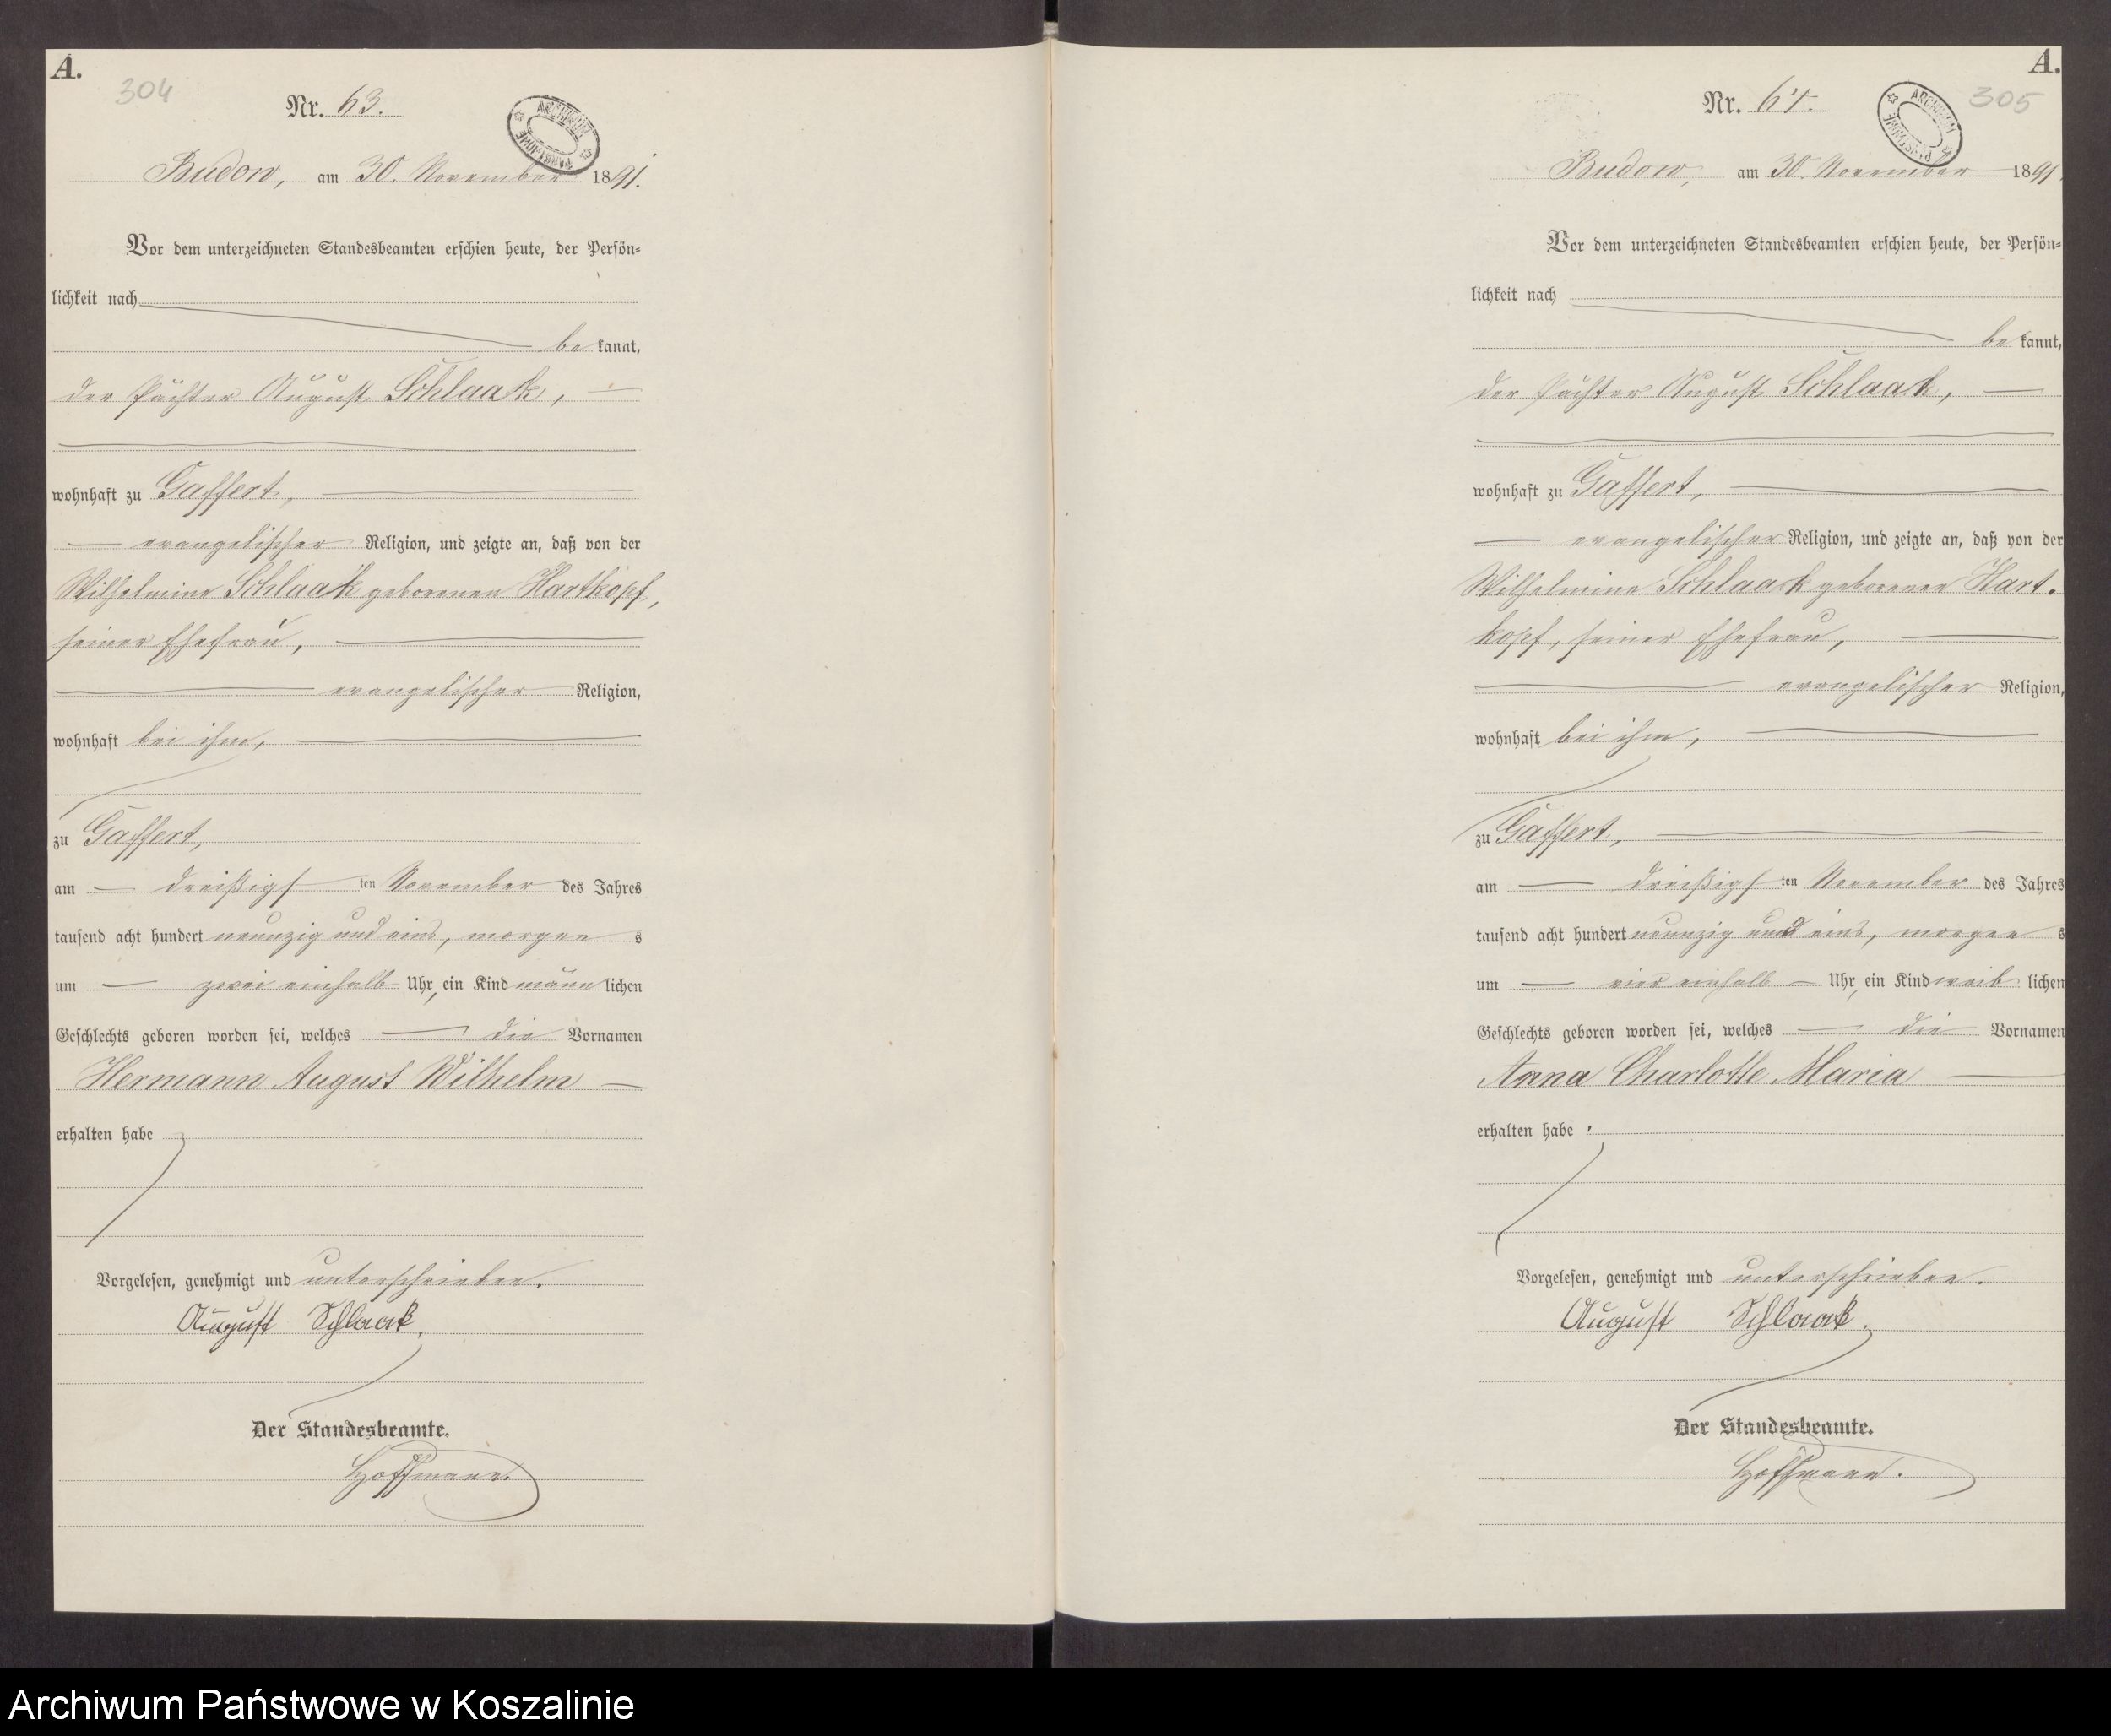 A.
304
Nr. 63.
ARCHIWUM PAŃSTWOWE
Budow, am 30. November 1891.
Vor dem unterzeichneten Standesbeamten erschien heute, der Persön-
lichkeit nach
be kannt,
der Pächter August Schlaak,
wohnhaft zu Gaffert,
evangelischer Religion, und zeigte an, daß von der
Wilhelmine Schlaak geborenen Hartkopf,
seiner Ehefrau,
evangelischer Religion,
wohnhaft bei ihm,
zu Gaffert,
am dreißigs ten November des Jahres
tausend acht hundert neunzig und eins, morgen s
um zwei einhalb Uhr, ein Kind männ lichen
Geschlechts geboren worden sei, welches die Vornamen
Hermann August Wilhelm
erhalten habe
Vorgelesen, genehmigt und unterschrieben.
August Schlaak.
Der Standesbeamte.
Hoffmann.
A.
305
Nr. 64.
ARCHIWUM PAŃSTWOWE
Budow, am 30. November 1891.
Vor dem unterzeichneten Standesbeamten erschien heute, der Persön-
lichkeit nach
be kannt,
der Pächter August Schlaak,
wohnhaft zu Gaffert,
evangelischer Religion, und zeigte an, daß von der
Wilhelmine Schlaak geborenen Hart-
kopf, seiner Ehefrau,
evangelischer Religion,
wohnhaft bei ihm,
zu Gaffert,
am dreißigs ten November des Jahres
tausend acht hundert neunzig und eins, morgen s
um vier einhalb Uhr, ein Kind weib lichen
Geschlechts geboren worden sei, welches die Vornamen
Anna Charlotte Maria
erhalten habe.
Vorgelesen, genehmigt und unterschrieben.
August Schlaak.
Der Standesbeamte.
Hoffmann.
Archiwum Państwowe w Koszalinie